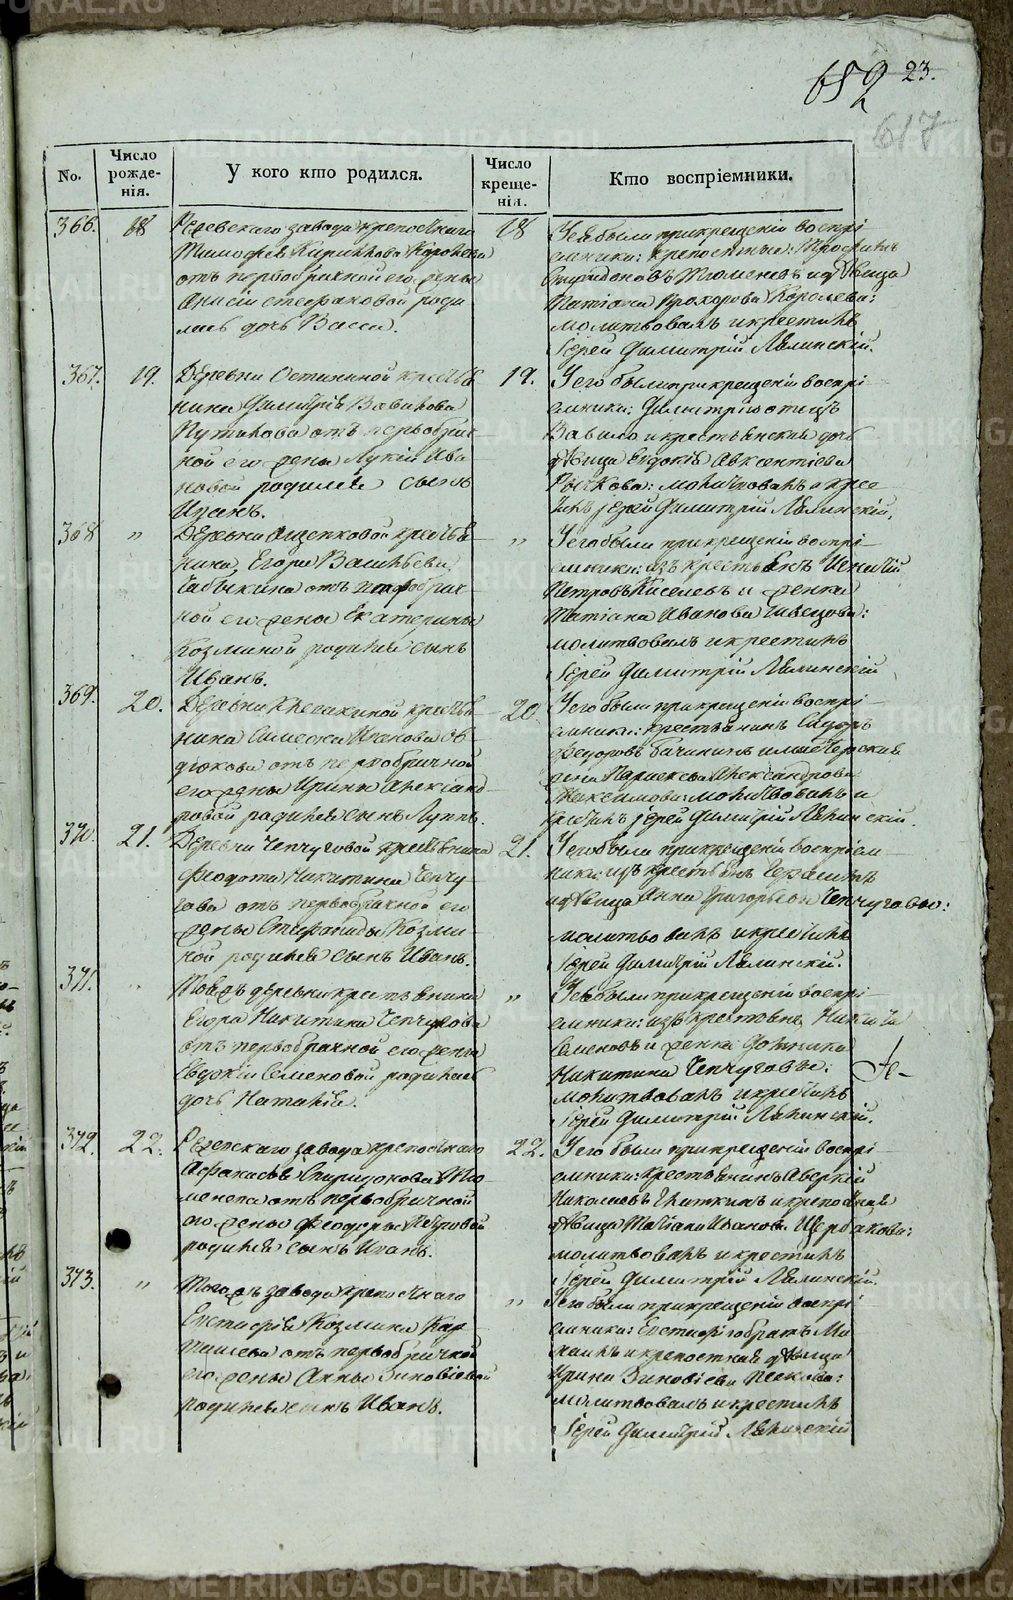 METRIKI.GASO-URAL.RU
652 23.
617
No.
Число рожде-нія.
У кого кто родился.
Число креще-нія.
Кто воспріемники.
366. 18 Режевскаго завода крепостнаго
Тимофея Кирилкова Королева
отъ первобрачной его жены
Анисіи Стефановой роди
лась дочь Васса.
18 У ея были при крещеніи воспрі
емники: крепостные: Трофимъ
Спиридоновъ Тюменевъ и девица
Татіана Прохорова Королева:
молитвовалъ и крестилъ
Іерей Димитрій Лялинскій.
367. 19. Деревни Останиной крестья
нина Димитрія Вавилова
Путилова отъ первобрач
ной его жены Лукіи Ива
новой родился сынъ
19. У его были при крещеніи воспрі
емники: Димитрію отецъ
Вавило и крестьянская дочь
девица Евдокія Авксентіева
Рычкова: молитвовалъ и крес
тилъ Іерей Димитрій Лялинскій.
368 " Деревни Ощепковой крестья
нина Егора Васильева
отъ первобрач
ной его жены Екатерины
Козминой родился сынъ
Иванъ.
" У его были при крещеніи воспрі
емники: изъ крестьянъ Игнатій
Петровъ Киселевъ и женка
Татіана Иванова Швецова:
молитвовалъ и крестилъ
Іерей Димитрій Лялинскій
369. 20. Деревни Клевакиной крестья
нина Симеона Иванова Ев
докова отъ первобрачной
его жены Ирины Александ
ровой родился сынъ Луппъ.
20. У его были при крещеніи воспрі
емники: крестьянинъ Сидоръ
Федоровъ Бачининъ и
жена Параскева Александрова
молитвовалъ и
крестилъ Іерей Димитрій Лялинскій.
370. 21. Деревни Чепчуговой крестьянина
Феодота Никитина Чепчу
гова отъ первобрачной его
жены Стефаниды Козми
ной родился сынъ Иванъ.
21. У его были при крещеніи воспріем
ники: изъ крестьянъ
и девица Анна Григорьева Чепчуговы:
молитвовалъ и крестилъ
Іерей Димитрій Лялинскій.
371. " Тойже деревни крестьянина
Егора Никитина Чепчугова
отъ первобрачной его жены
Евдокіи Семеновой родилась
дочь Наталія.
" У ея были при крещеніи воспрі
емники: изъ крестьянъ Никита
Семеновъ и женка
Никитина Чепчуговы:
молитвовалъ и крестилъ
Іерей Димитрій Лялинскій.
372. 22. Режевскаго завода крепостнаго
Афанасья Спиридонова Тю
менева отъ первобрачной
его жены Феодоры Петровой
родился сынъ Иванъ.
22. У его были при крещеніи воспрі
емники: крестьянинъ Аверкій
Николаевъ и крепостная
девица Татіана Иванова Щербакова:
молитвовалъ и крестилъ
Іерей Димитрій Лялинскій.
373. " Тогожъ завода крепостнаго
Евстафія Козмина Кар
ташева отъ первобрачной
его жены Анны Зиновіевой
родился сынъ Иванъ.
" У его были при крещеніи воспрі
емники: Евстафію братъ Ми
хаилъ и крепостная девица
Ирина Зиновіева Пескова:
молитвовалъ и крестилъ
Іерей Димитрій Лялинскій